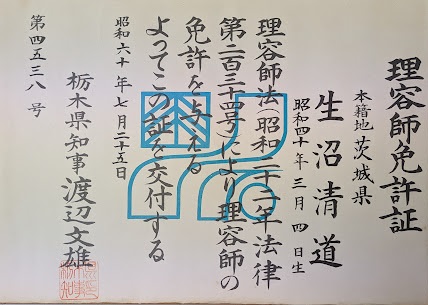 理容師免許証
本籍地 茨城県
生沼清道
昭和四十年三月四日生
理容師法(昭和二十二年法律
第二百三十四号)により理容師の
免許を与える
よってこの証を交付する
昭和六十年七月二十五日
栃木県知事 渡辺文雄
第四五三八号